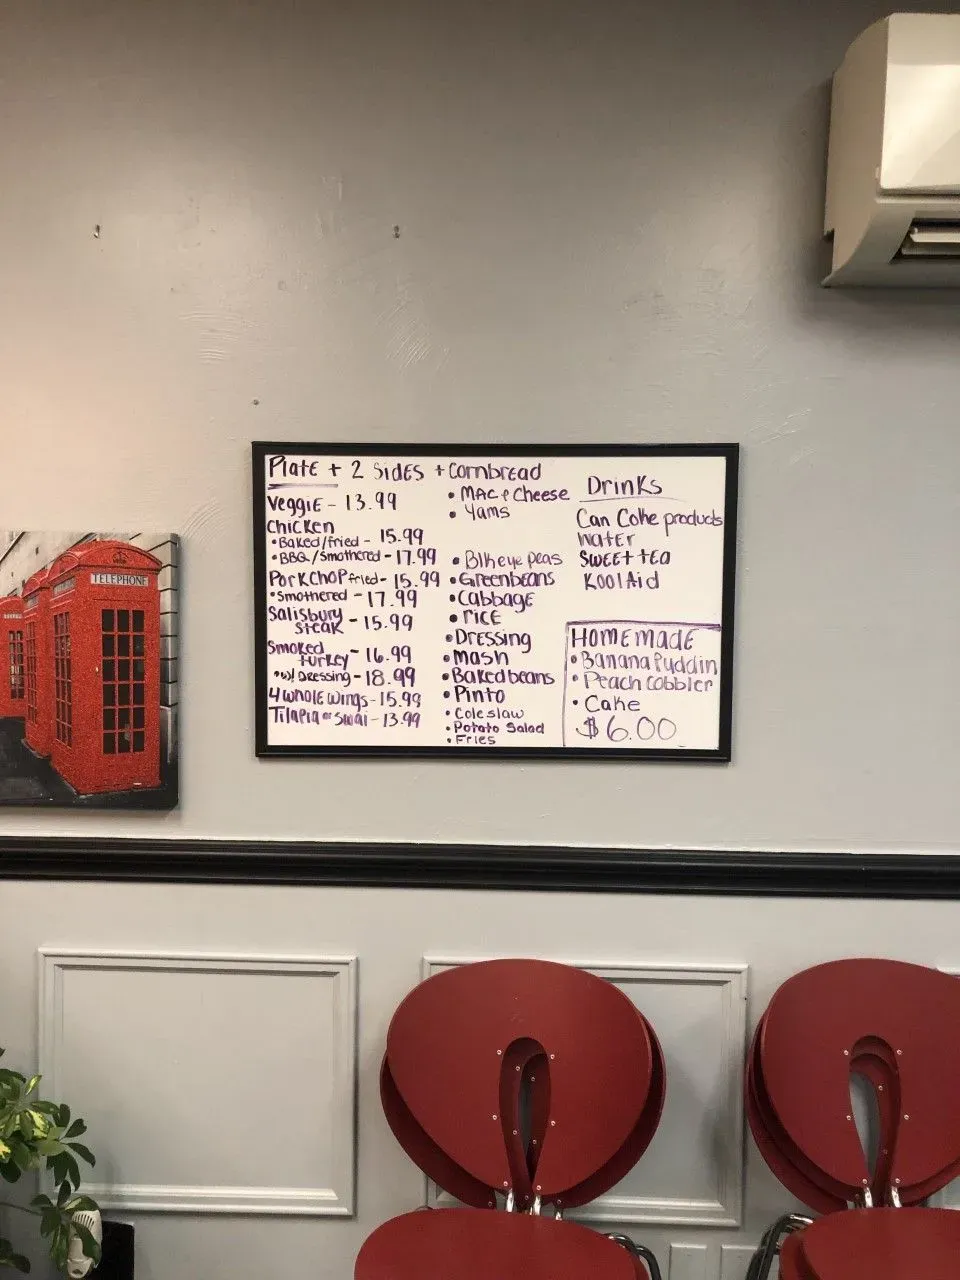 TELEPHONE
Plate + 2 Sides + Cornbread
Veggie - 13.99
Chicken
• Baked/fried - 15.99
• BBQ/Smothered - 17.99
Porkchop fried - 15.99
• Smothered - 17.99
Salisbury
Steak - 15.99
Smoked
turkey - 16.99
• w/ Dressing - 18.99
4 whole wings - 15.99
Tilapia or Swai - 13.99
• Mac & Cheese
• Yams
• Blkeye peas
• Greenbeans
• Cabbage
• Rice
• Dressing
• Mash
• Baked beans
• Pinto
• Coleslaw
• Potato Salad
• Fries
Drinks
Can Coke products
Water
Sweet tea
KoolAid
Homemade
• Banana Puddin
• Peach Cobbler
• Cake
$6.00